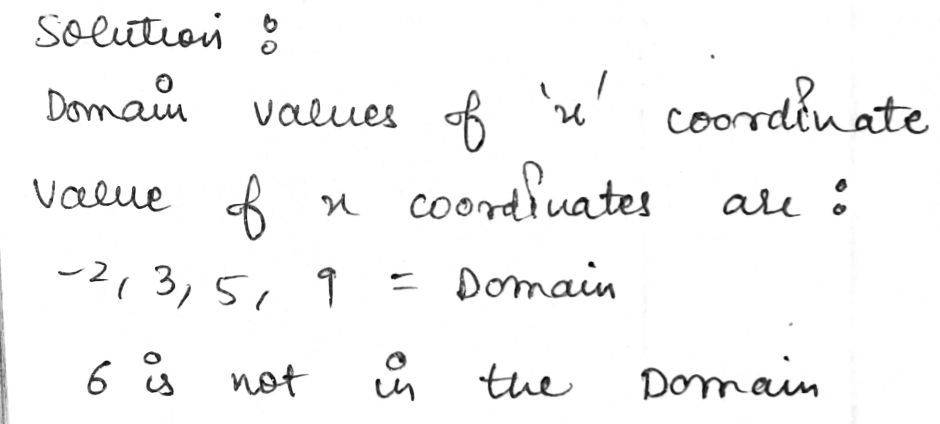 Solution :
Domain values of 'x' coordinate
value of x coordinates are :
-2, 3, 5, 9 = Domain
6 is not in the Domain